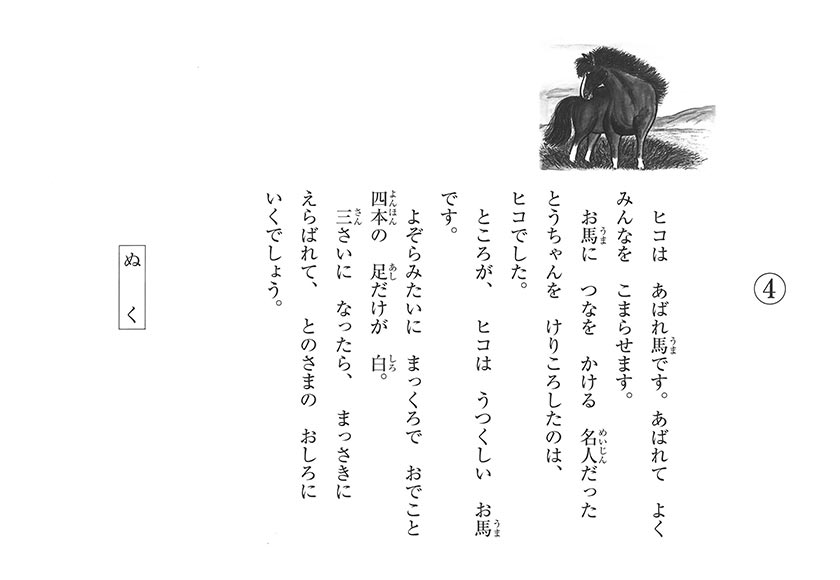 ④
ヒコは　あばれ馬です。あばれて　よく
みんなを　こまらせます。
お馬に　つなを　かける　名人だった
とうちゃんを　けりころしたのは、
ヒコでした。
ところが、　ヒコは　うつくしい　お馬
です。
よぞらみたいに　まっくろで　おでこと
四本の　足だけが　白。
三さいに　なったら、　まっさきに
えらばれて、　とのさまの　おしろに
いくでしょう。
ぬく